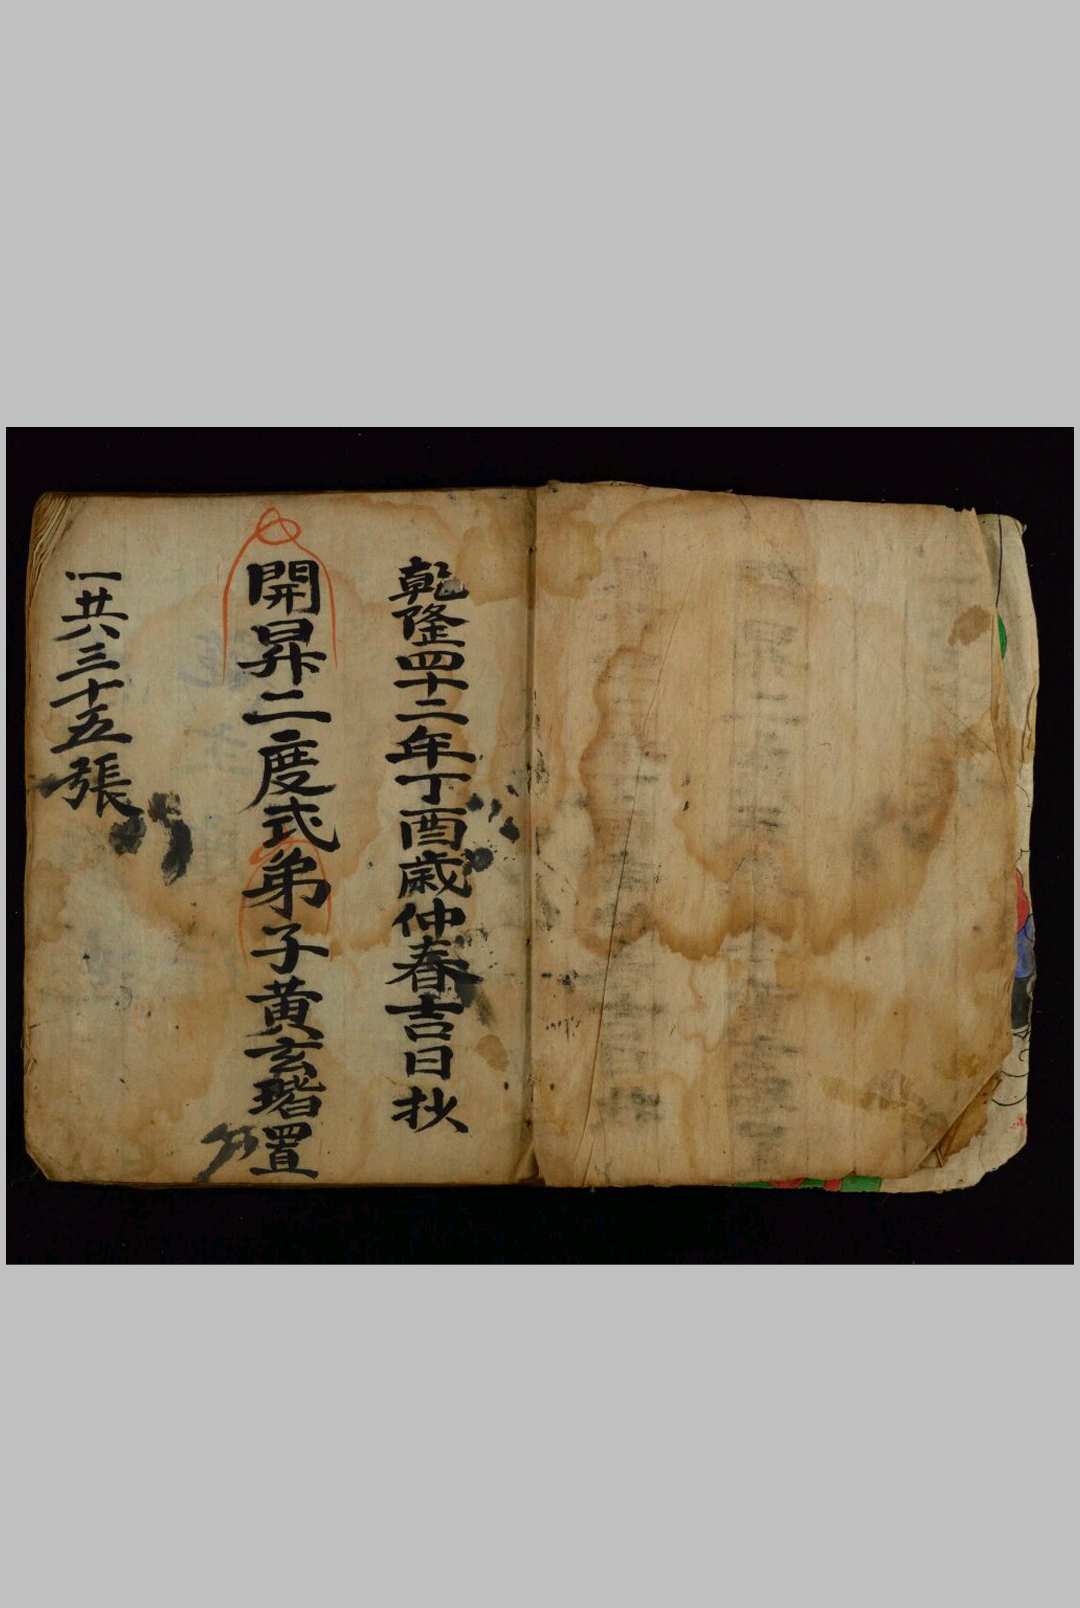 乾隆四十二年丁酉歲仲春吉日抄
開昇二度式弟子黄玄瑎置
一共三十五張